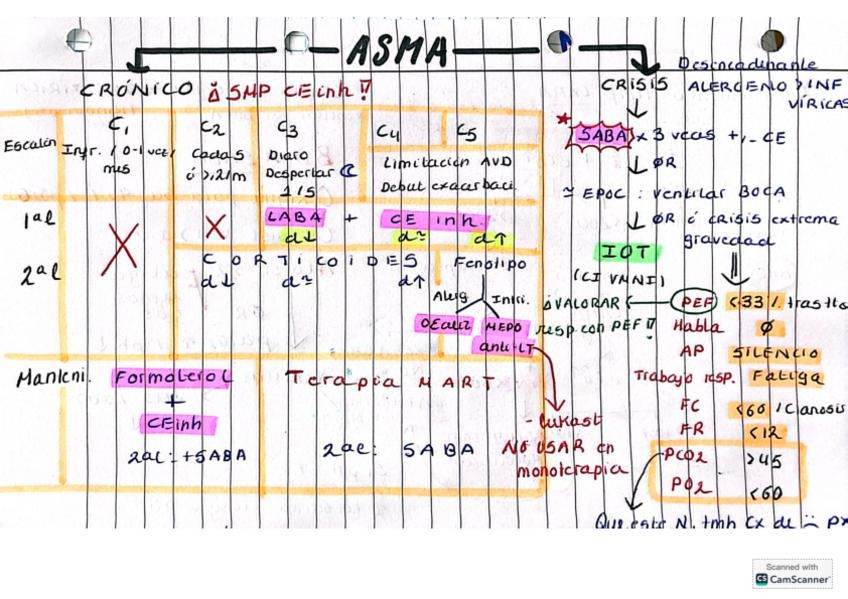 ASMA
CRÓNICO Δ SMP CEinh!!
Escalón
C1
Infr. / 0-1 vez/
mes
C2
Cada 5
ó >,2/m
C3
Diaro
Despertar ☾
1/5
C4 C5
Limitación AVD
Debut exacerbaci.
1ªl X X LABA + CE inh.
d↓ d≃ d↑
2ªl CORTICOIDES
d↓ d≃ d↑
Fenotipo
Alerg Inici.
OEaliz MEPO
anti-LT
Manteni. Formoterol
+
CEinh
2ae: +SABA
Terapia MART
2ae: SABA
- lukast
NO USAR en
monoterapia
CRISIS
Desencadenante
ALERGENO > INF
VÍRICAS
* SABA x 3 veces +/- CE
↓ ØR
≃ EPOC : ventilar BOCA
↓ ØR ó CRISIS extrema
gravedad
IOT
(CI VMNI)
ΔVALORAR
resp. con PEF!!
PEF <33%. tras tto
Habla Ø
AP SILENCIO
Trabajo resp. Fatiga
FC <60 / Cianosis
FR <12
PCO2 >45
PO2 <60
Que este N. tmb Cx de ☹ px
Scanned with
CS CamScanner